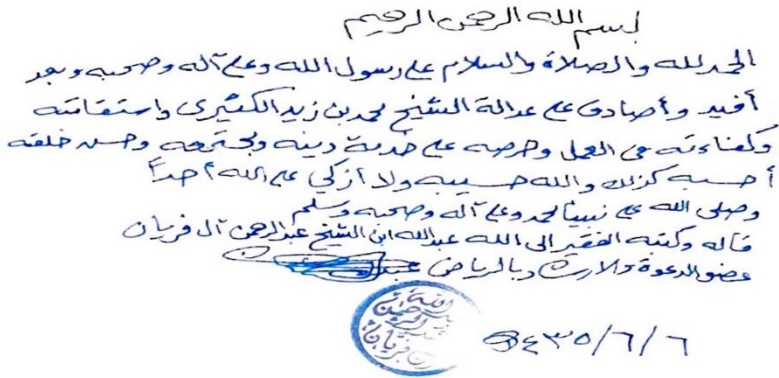 بسم الله الرحمن الرحيم
الحمد لله والصلاة والسلام على رسول الله وعلى آله وصحبه وبعد
أفيد وأصادق على عدالة الشيخ محمد بن زيد الكثيري واستقامته
وكفاءته في العمل وحرصه على خدمة دينه ومجتمعه وحسن خلقه
أحسبه كذلك والله حسيبه ولا أزكي على الله أحداً
وصلى الله على نبينا محمد وعلى آله وصحبه وسلم
قاله وكتبه الفقير إلى الله عبدالله ابن الشيخ عبدالرحمن آل فريان
عضو الدعوة والارشاد بالرياض
١٤٣٥/٦/٦هـ